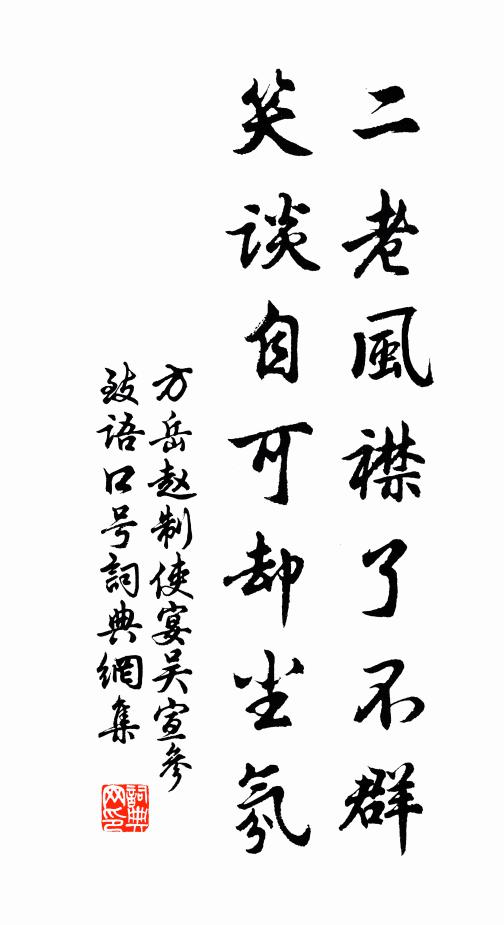 二老風襟了不群
笑談自可却尘氛
方岳赵制使宴吴宣參
致语口号詞典網集
詞典网印